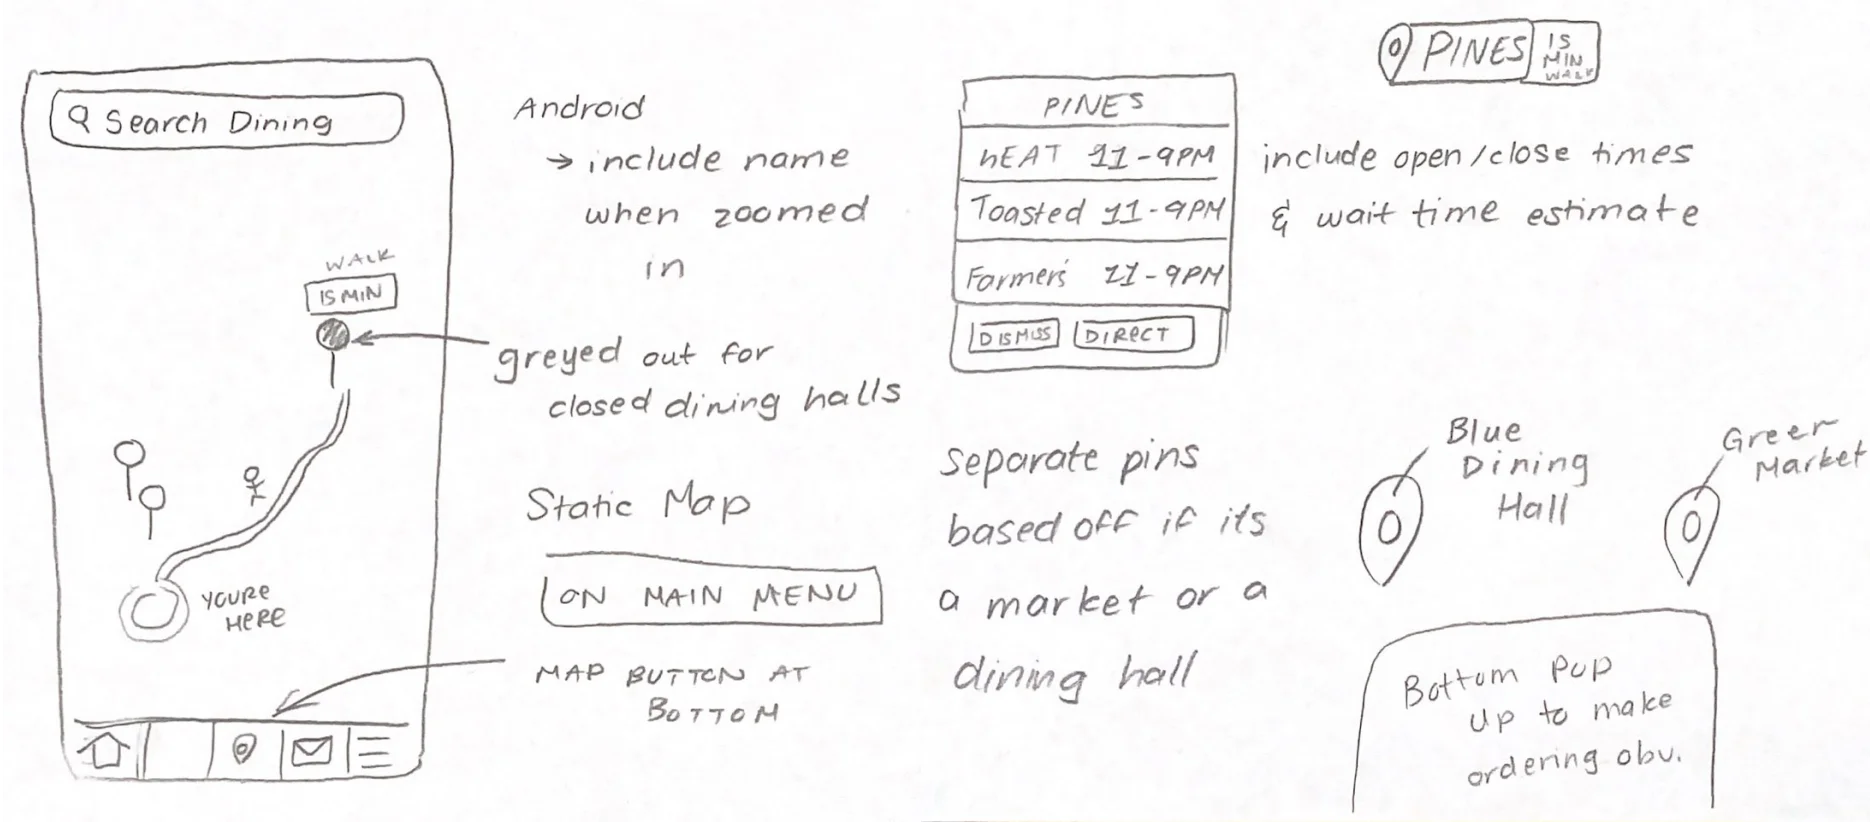 Search Dining
WALK
15 MIN
YOURE
HERE
Android
→ include name
when zoomed
in
greyed out for
closed dining halls
Static Map
ON MAIN MENU
MAP BUTTON AT
BOTTOM
PINES
hEAT 11-9PM
Toasted 11-9PM
Farmers' 11-9PM
DISMISS
DIRECT
PINES
15
MIN
WALK
include open/close times
& wait time estimate
separate pins
based off if its
a market or a
dining hall
Blue
Dining
Hall
Green
Market
Bottom pop
up to make
ordering obv.